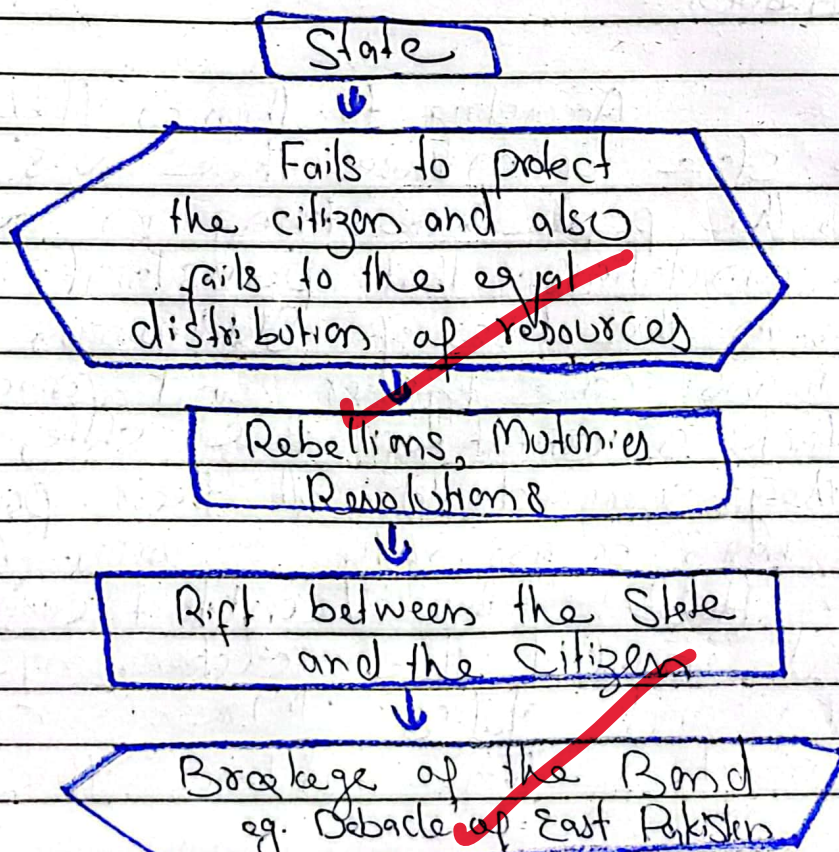 State
Fails to protect
the citizen and also
fails to the eqal
distribution of resources
Rebellions, Mutunies
Revolutions
Rift between the State
and the Citizen
Breakage of the Bond
eg. Debacle of East Pakistan